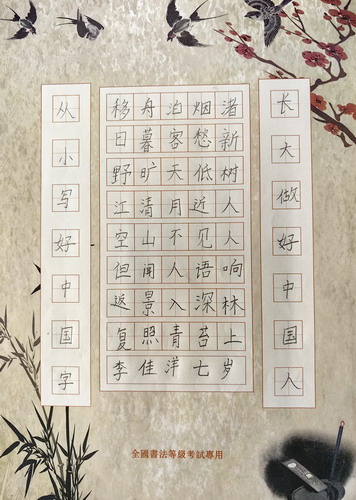 从小写好中国字
移舟泊烟渚
日暮客愁新
野旷天低树
江清月近人
空山不见人
但闻人语响
返景入深林
复照青苔上
李佳洋七岁
长大做好中国人
全國書法等級考試專用